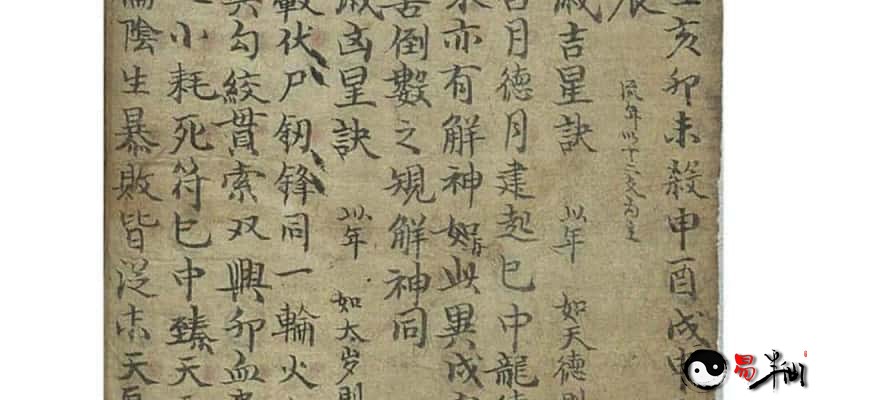 亥卯未殺申酉戌
辰
流年以十二支为主
歲吉星訣 以年 如天德則
月德月建起巳中龍德
亦有解神如皆此異成
倒數之規解神同
歲凶星訣 以年 如太岁則
伏尸釰锋同一輪火
勾絞貫索双興卯血
小耗死符巳中臻天
陰生暴敗皆從未天
易半仙